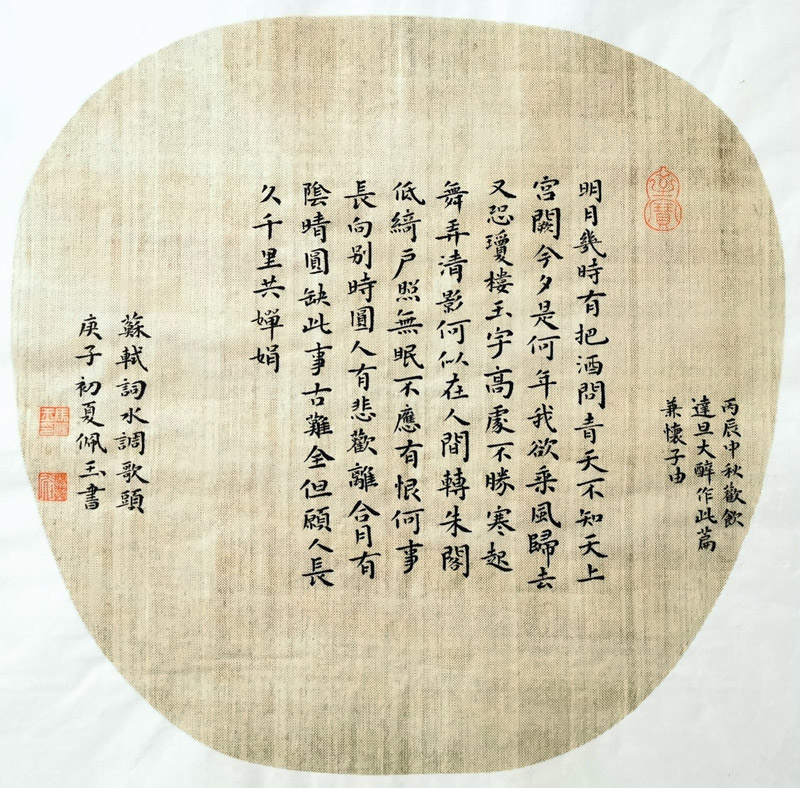 丙辰中秋歡飲
達旦大醉作此篇
兼懷子由
明月幾時有把酒問青天不知天上
宮闕今夕是何年我欲乘風歸去
又恐瓊樓玉宇高處不勝寒起
舞弄清影何似在人間轉朱閣
低綺戶照無眠不應有恨何事
長向别時圓人有悲歡離合月有
陰晴圓缺此事古難全但願人長
久千里共嬋娟
蘇軾詞水調歌頭
庚子初夏佩玉書